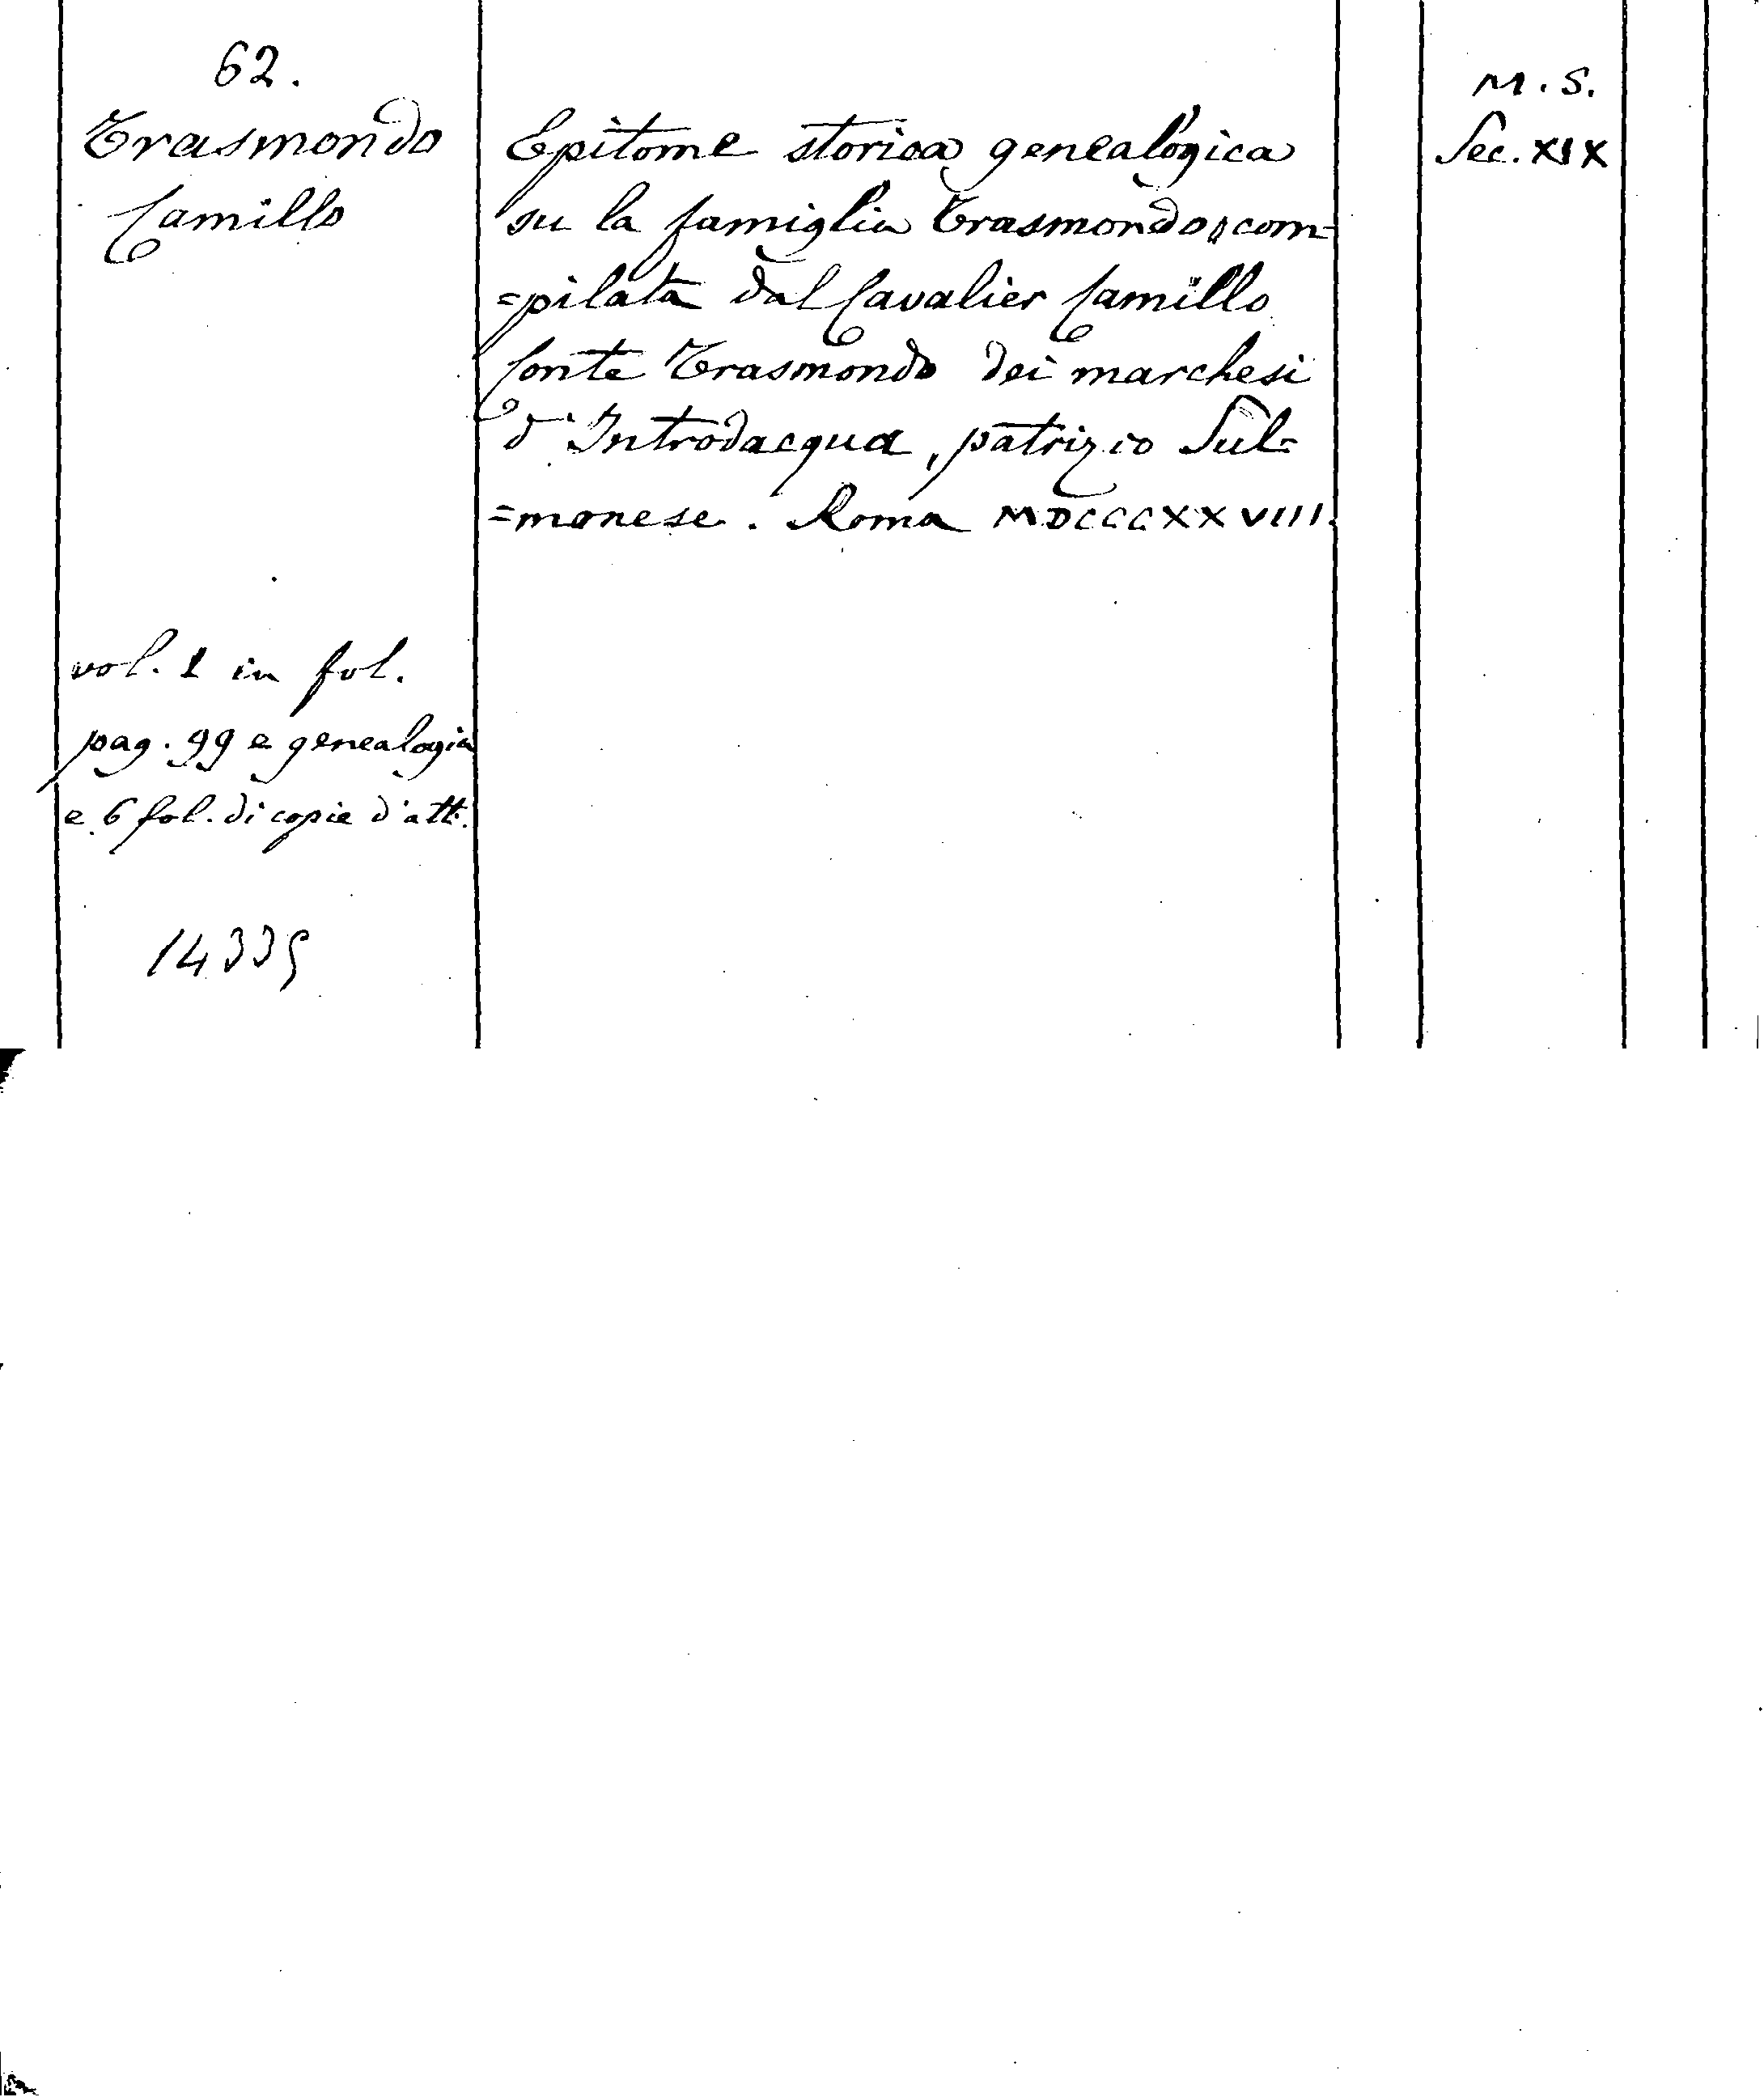 62.
Trasmondo
Camillo
Epitome storica genealogica
su la famiglia Trasmondo, com=
=pilata dal Cavalier Camillo
Conte Trasmondo dei marchesi
d'Introdacqua, patrizio Sul=
=monese. Roma MDCCCXXVIII.
M.S.
Sec. XIX
vol. 1 in fol.
pag. 99 e genealogia
e 6 fol. di copie d'atti.
14335